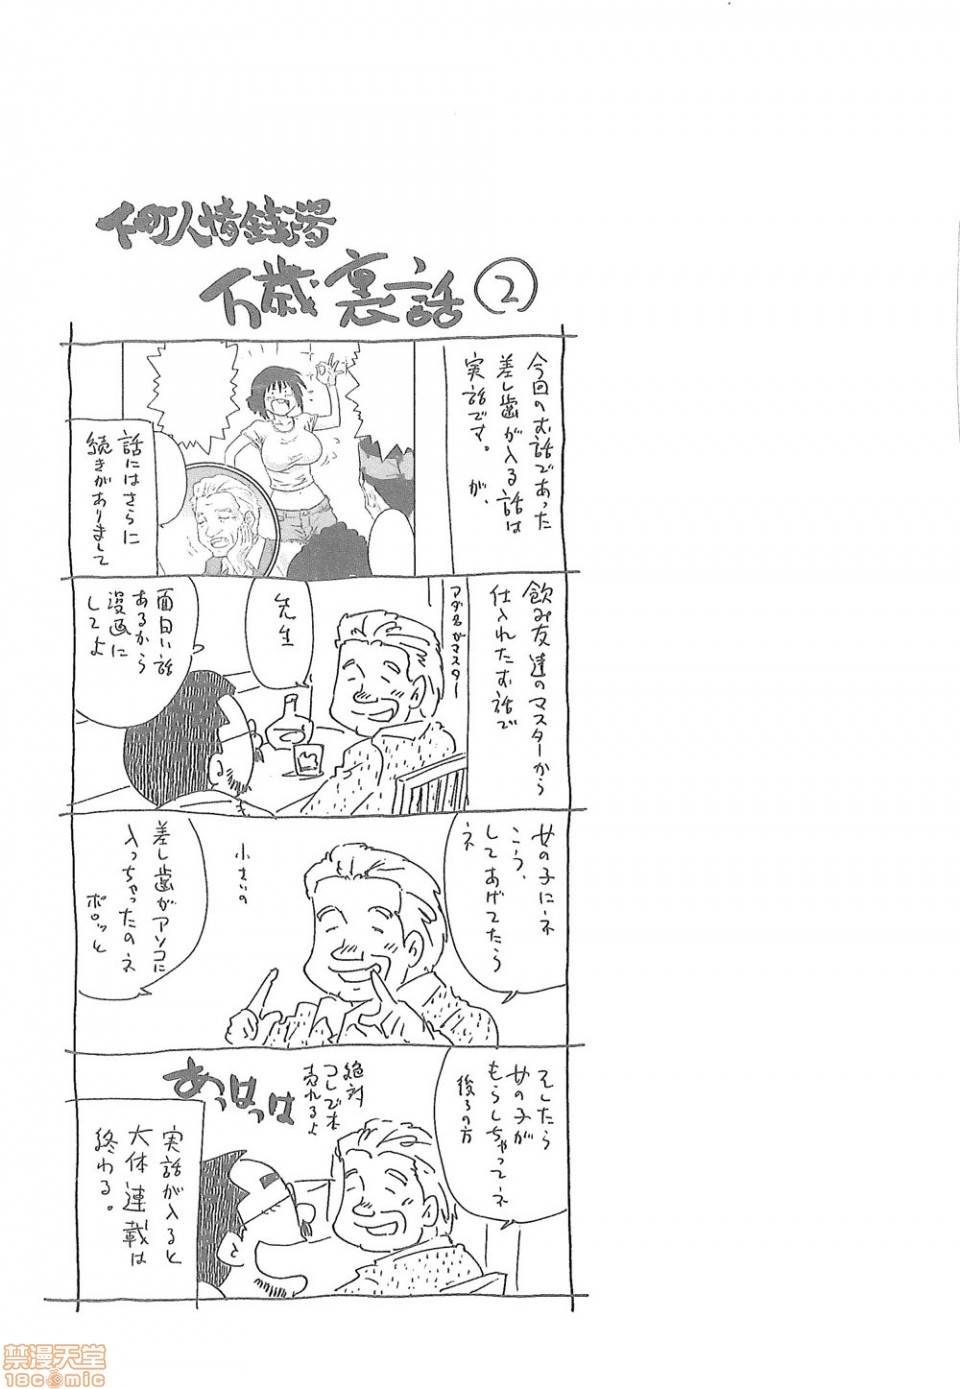 下町人情銭湯
万歳裏話②
今回のお話であった
差し歯が入る話は
実話です。が、
話にはさらに
続きがありまして
飲み友達のマスターから
仕入れたお話で
アダ名がマスター
先生
面白い話
あるから
漫画に
してよ
女の子にネ
こう、
してあげてたら
ネ
小さいの
差し歯がアソコに
入っちゃったのネ
ポロッと
そしたら
女の子が
もらしちゃってネ
後ろの方
絶対
コレで本
売れるよ
あっはっはっは
実話が入ると
大体連載は
終わる。
禁漫天堂
18comic